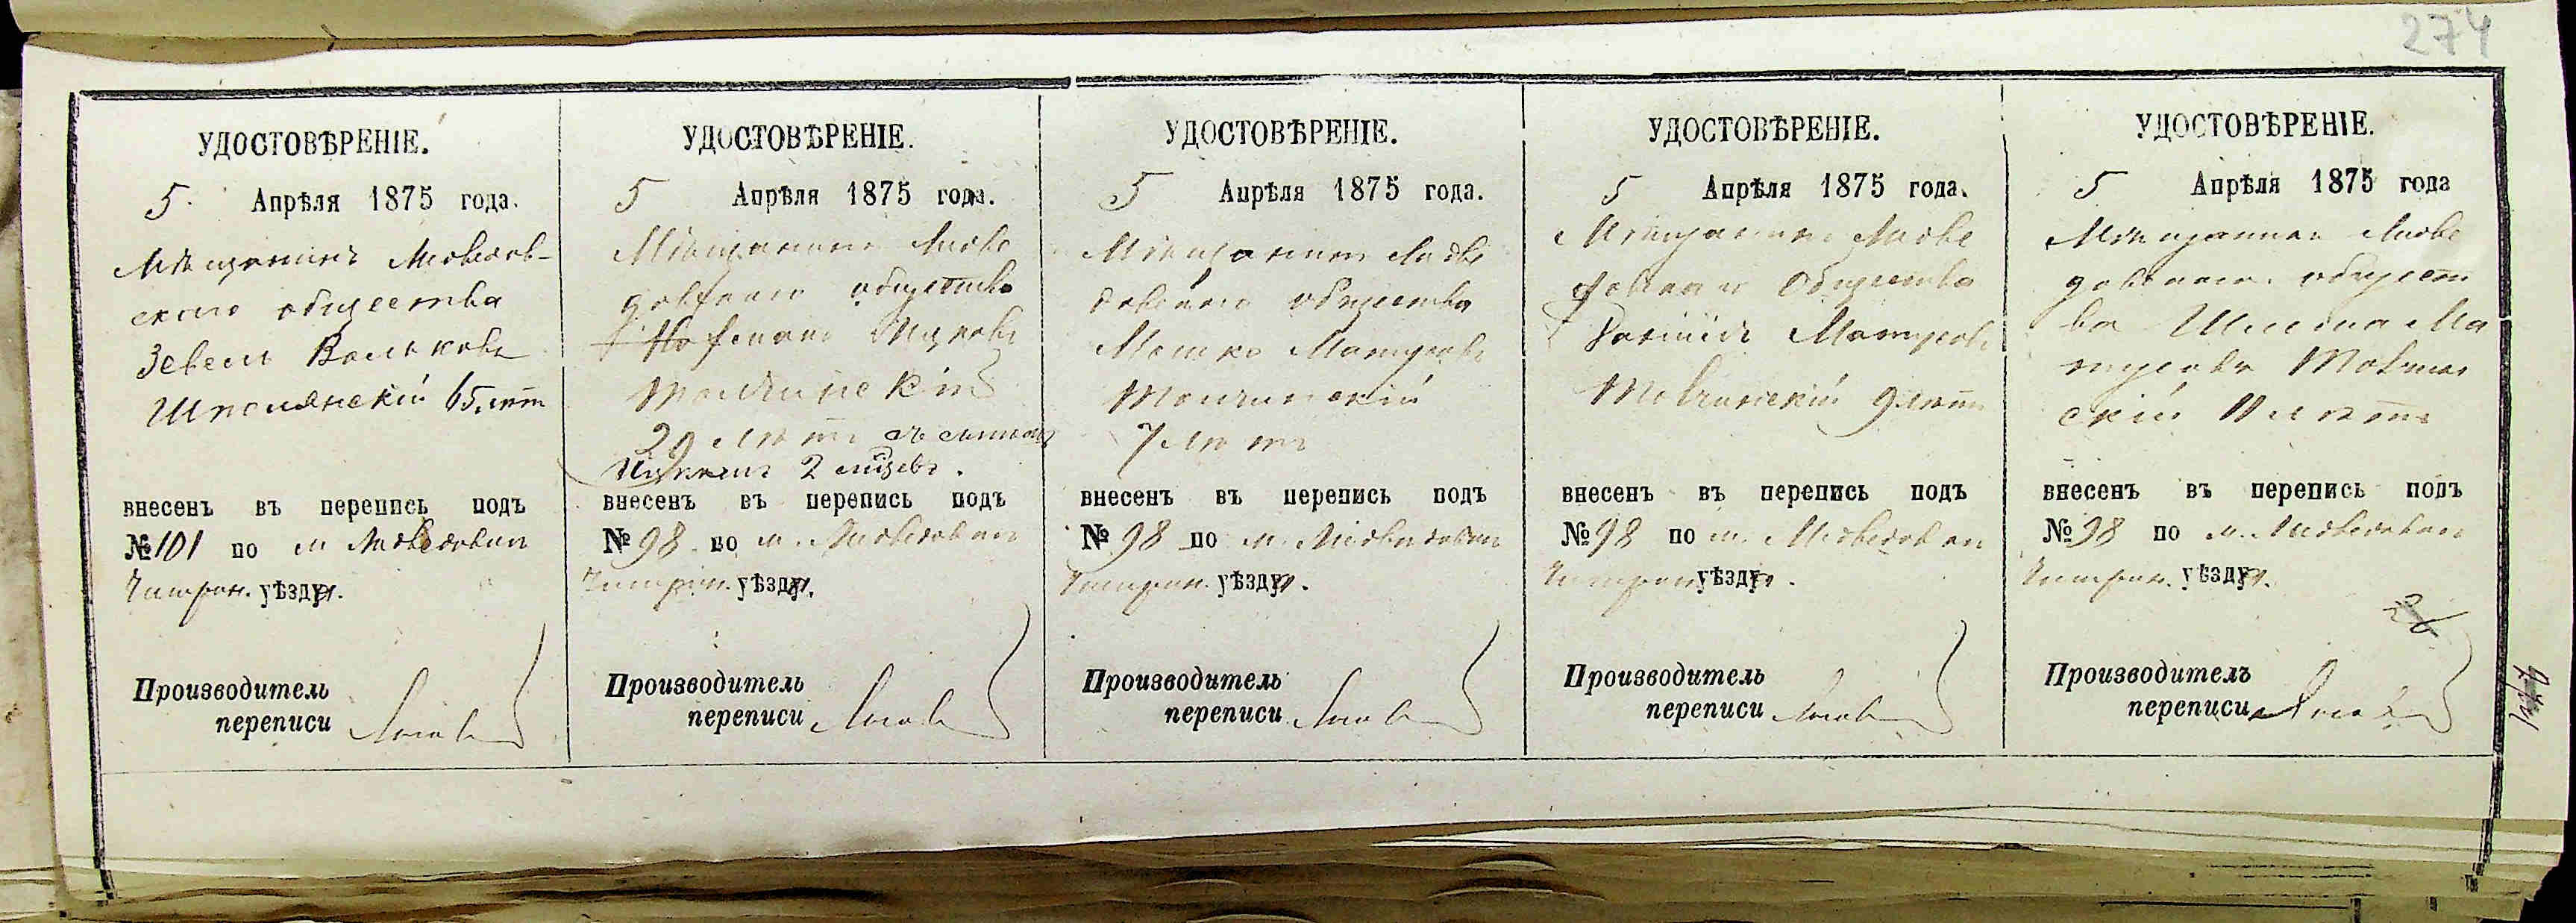 274
УДОСТОВѢРЕНІЕ.
5. Апрѣля 1875 года.
Мѣщанинъ Медведов-
скаго общества
Зевель Вольковъ
Шполянскій 65 лѣтъ
внесенъ въ перепись подъ
№ 101 по м Медведовки
Чигрин. уѣзда.
Производитель
переписи
УДОСТОВѢРЕНІЕ.
5 Апрѣля 1875 года.
Мѣщанинъ Медве
довскаго общества
Ицковъ
29 лѣтъ съ сыномъ
Ицкомъ 2 месяцевъ.
внесенъ въ перепись подъ
№ 98 по м. Медведовки
Чигрин. уѣзда.
Производитель
переписи
УДОСТОВѢРЕНІЕ.
5 Апрѣля 1875 года.
Мѣщанинъ Медве
довскаго общества
Мошко Матусовъ
Товчинскій
7 лѣтъ
внесенъ въ перепись подъ
№ 98 по м. Медведовки
Чигрин. уѣзда.
Производитель
переписи
УДОСТОВѢРЕНІЕ.
5 Апрѣля 1875 года.
Мѣщанинъ Медве
довскаго Общества
Матусовъ
Товчинскій 9 лѣтъ
внесенъ въ перепись подъ
№ 98 по м. Медведовки
Чигрин. уѣзда.
Производитель
переписи
УДОСТОВѢРЕНІЕ.
5 Апрѣля 1875 года
Мѣщанинъ Медве
довскаго общест
ва Шлема Ма
тусовъ Товчин
скій 11 лѣтъ
внесенъ въ перепись подъ
№ 98 по м. Медведовки
Чигрин. уѣзда.
26
Производитель
переписи